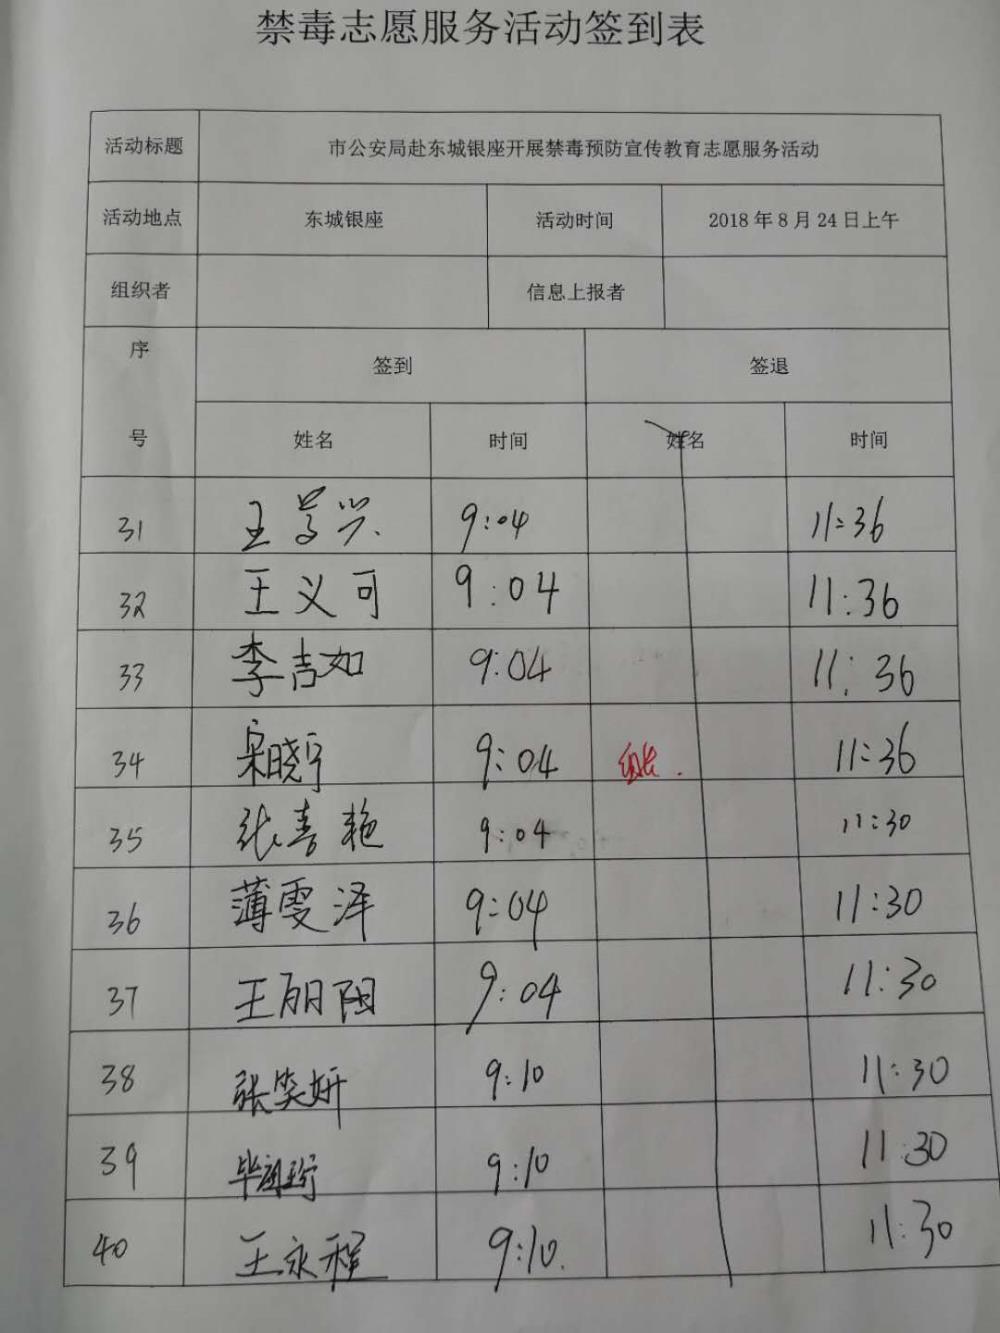 禁毒志愿服务活动签到表
活动标题 市公安局赴东城银座开展禁毒预防宣传教育志愿服务活动
活动地点 东城银座 活动时间 2018年8月24日上午
组织者 信息上报者
序号 签到 签退
姓名 时间 姓名 时间
31 王景兴 9:04 11:36
32 王义可 9:04 11:36
33 李吉如 9:04 11:36
34 宋晓宁 9:04 组长. 11:36
35 张喜艳 9:04 11:30
36 薄雯泽 9:04 11:30
37 王丽阳 9:04 11:30
38 张笑妍 9:10 11:30
39 9:10 11:30
40 王永程 9:10. 11:30